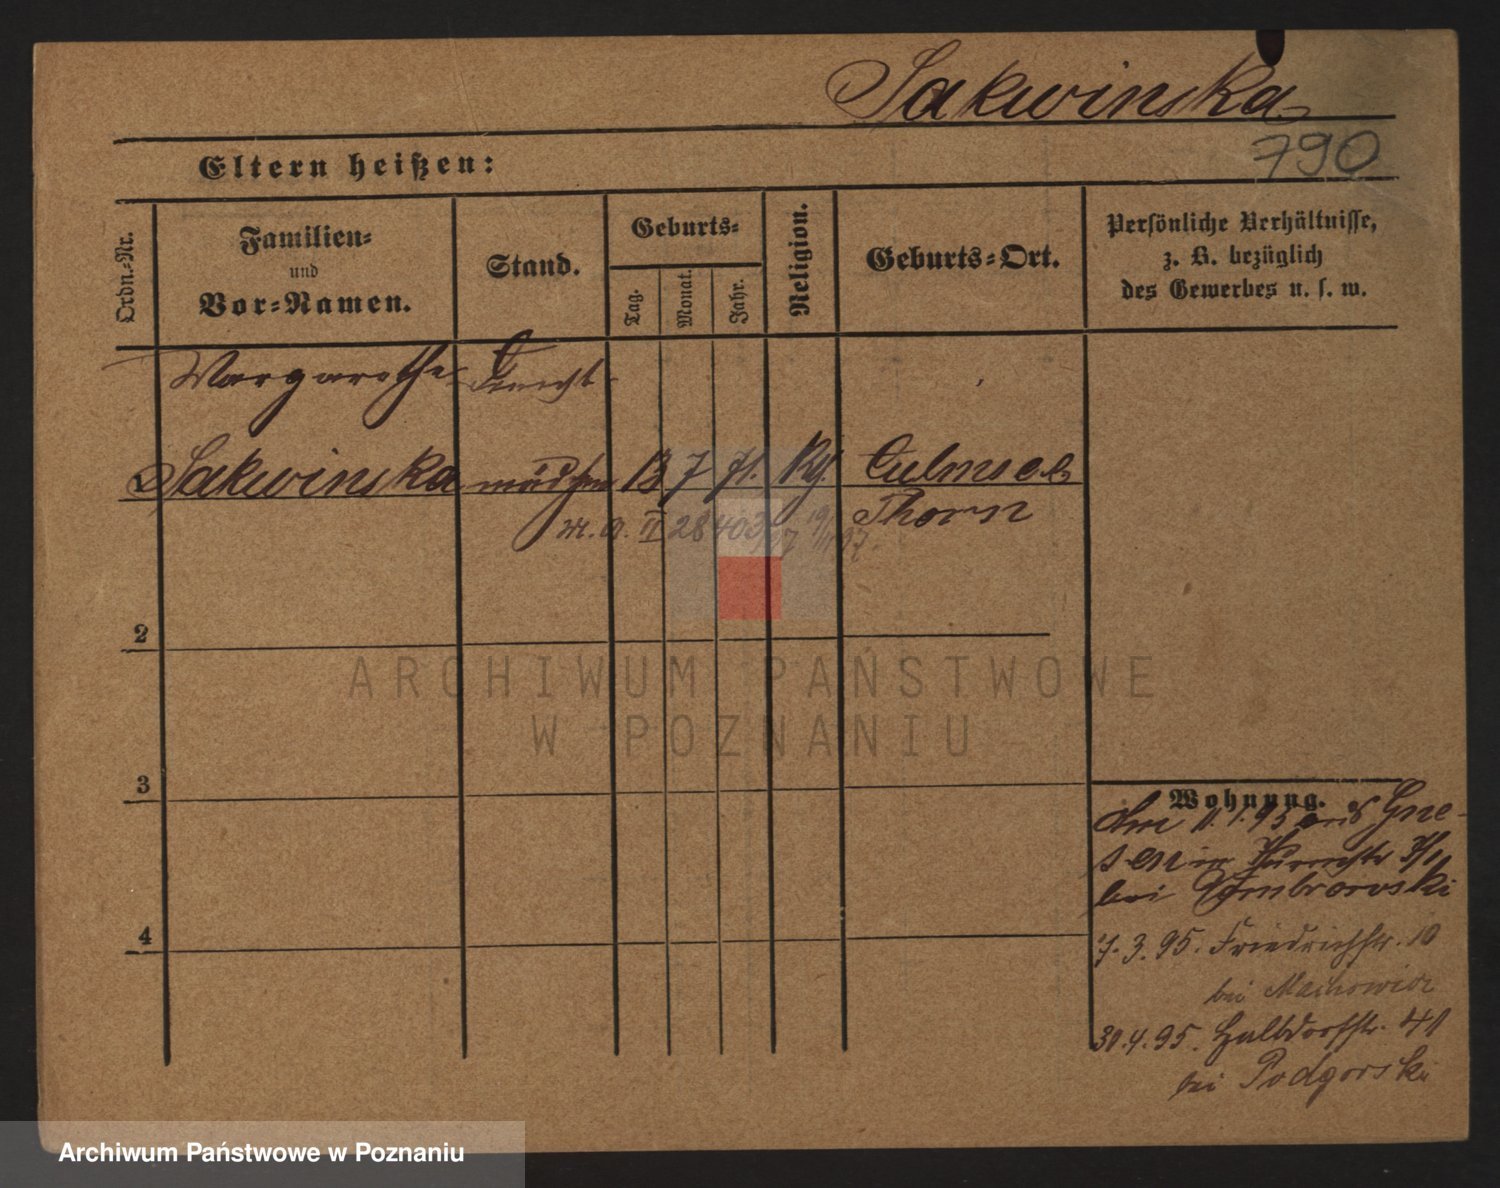 Sakwinska
790
Eltern heißen:
Ordn.-Nr.
Familien-
und
Vor-Namen.
Stand.
Geburts-
Tag.
Monat.
Jahr.
Religion.
Geburts-Ort.
Persönliche Verhältnisse,
z. B. bezüglich
des Gewerbes u. s. w.
Margarethe
Sakwinska
mädchen
13 7 71.
Culmsee
Thorn
2
3
4
Wohnung.
Am 11.1.95 aus Gne-
sen
bei Dombrowski
7.3.95. Friedrichstr. 10
bei
30.4.95. Halbdorfstr. 41
bei Podgorski
ARCHIWUM PAŃSTWOWE
W POZNANIU
Archiwum Państwowe w Poznaniu